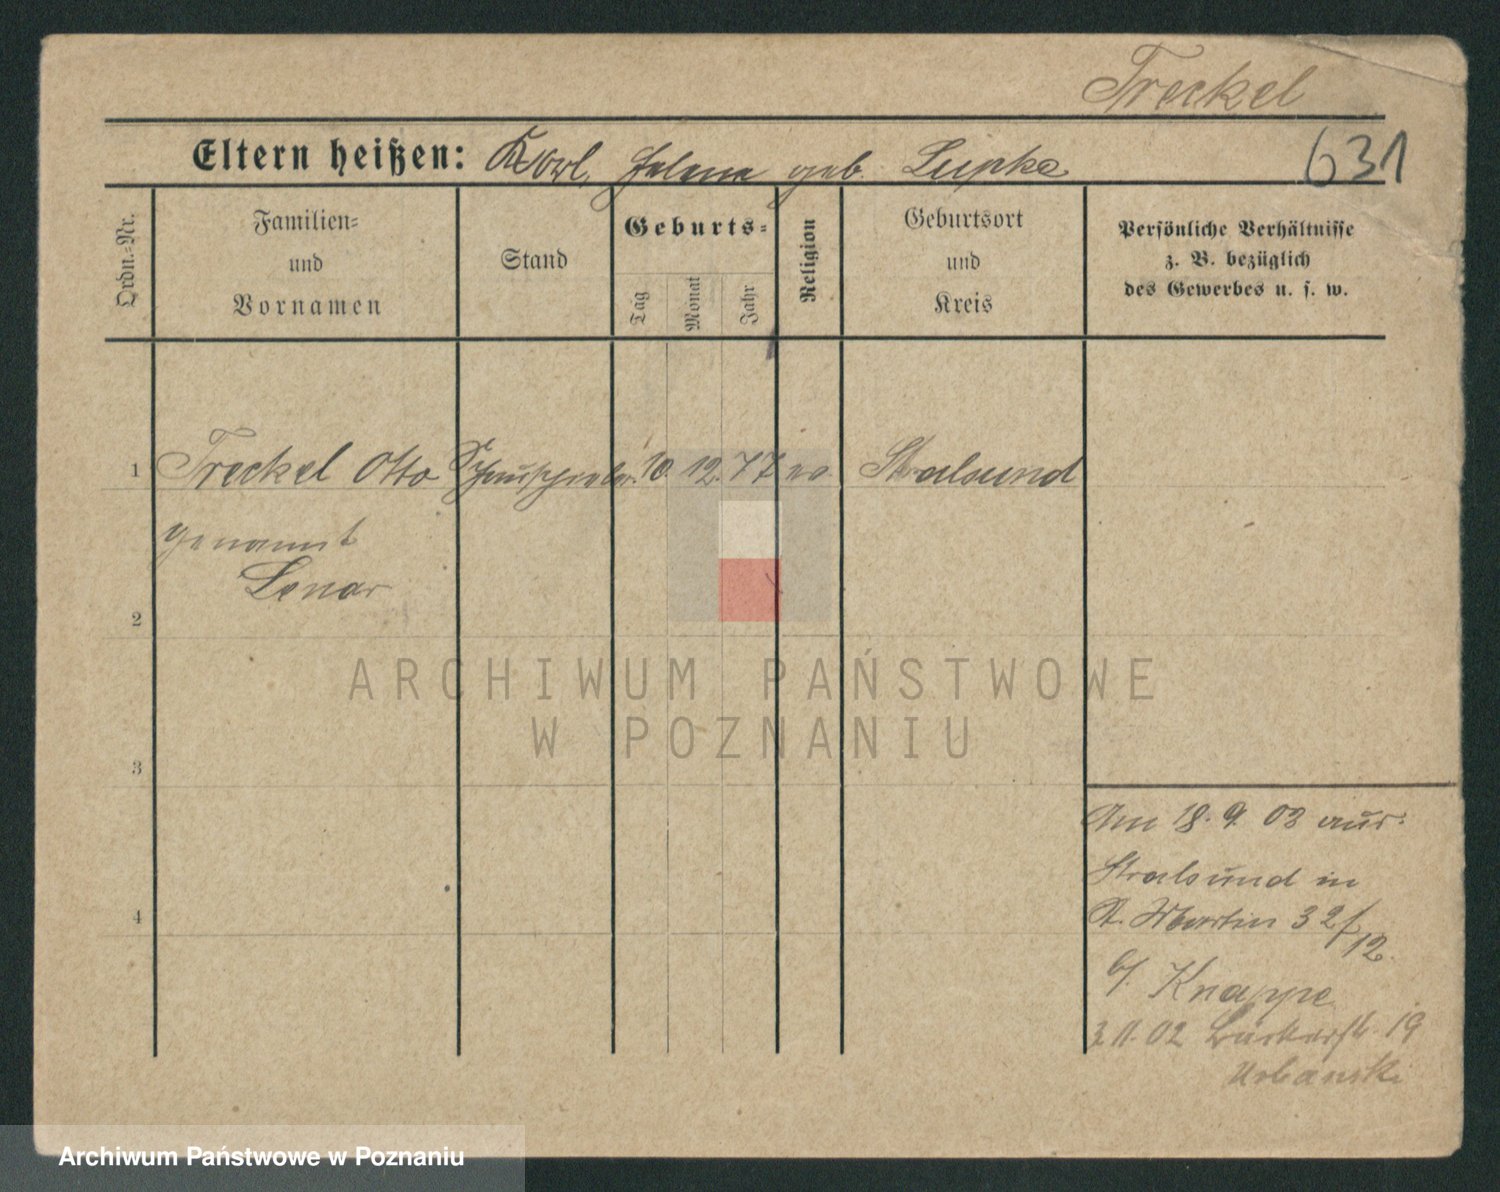 Treckel
631
Eltern heißen: Karl, Helene geb. Lupke
Ordn.-Nr.
Familien-
und
Vornamen
Stand
Geburts-
Tag
Monat
Jahr
Religion
Geburtsort
und
Kreis
Persönliche Verhältnisse
z. B. bezüglich
des Gewerbes u. s. w.
1 Treckel Otto Schauspieler. 10. 12. 77 ev. Stralsund
genannt
Lenar
2
3
4
Am 18. 9. 02 aus
Stralsund in
St. Martin 32/12.
b/ Knappe
3. 11. 02 Bäckerstr. 19
Urbanski
ARCHIWUM PAŃSTWOWE
W POZNANIU
Archiwum Państwowe w Poznaniu